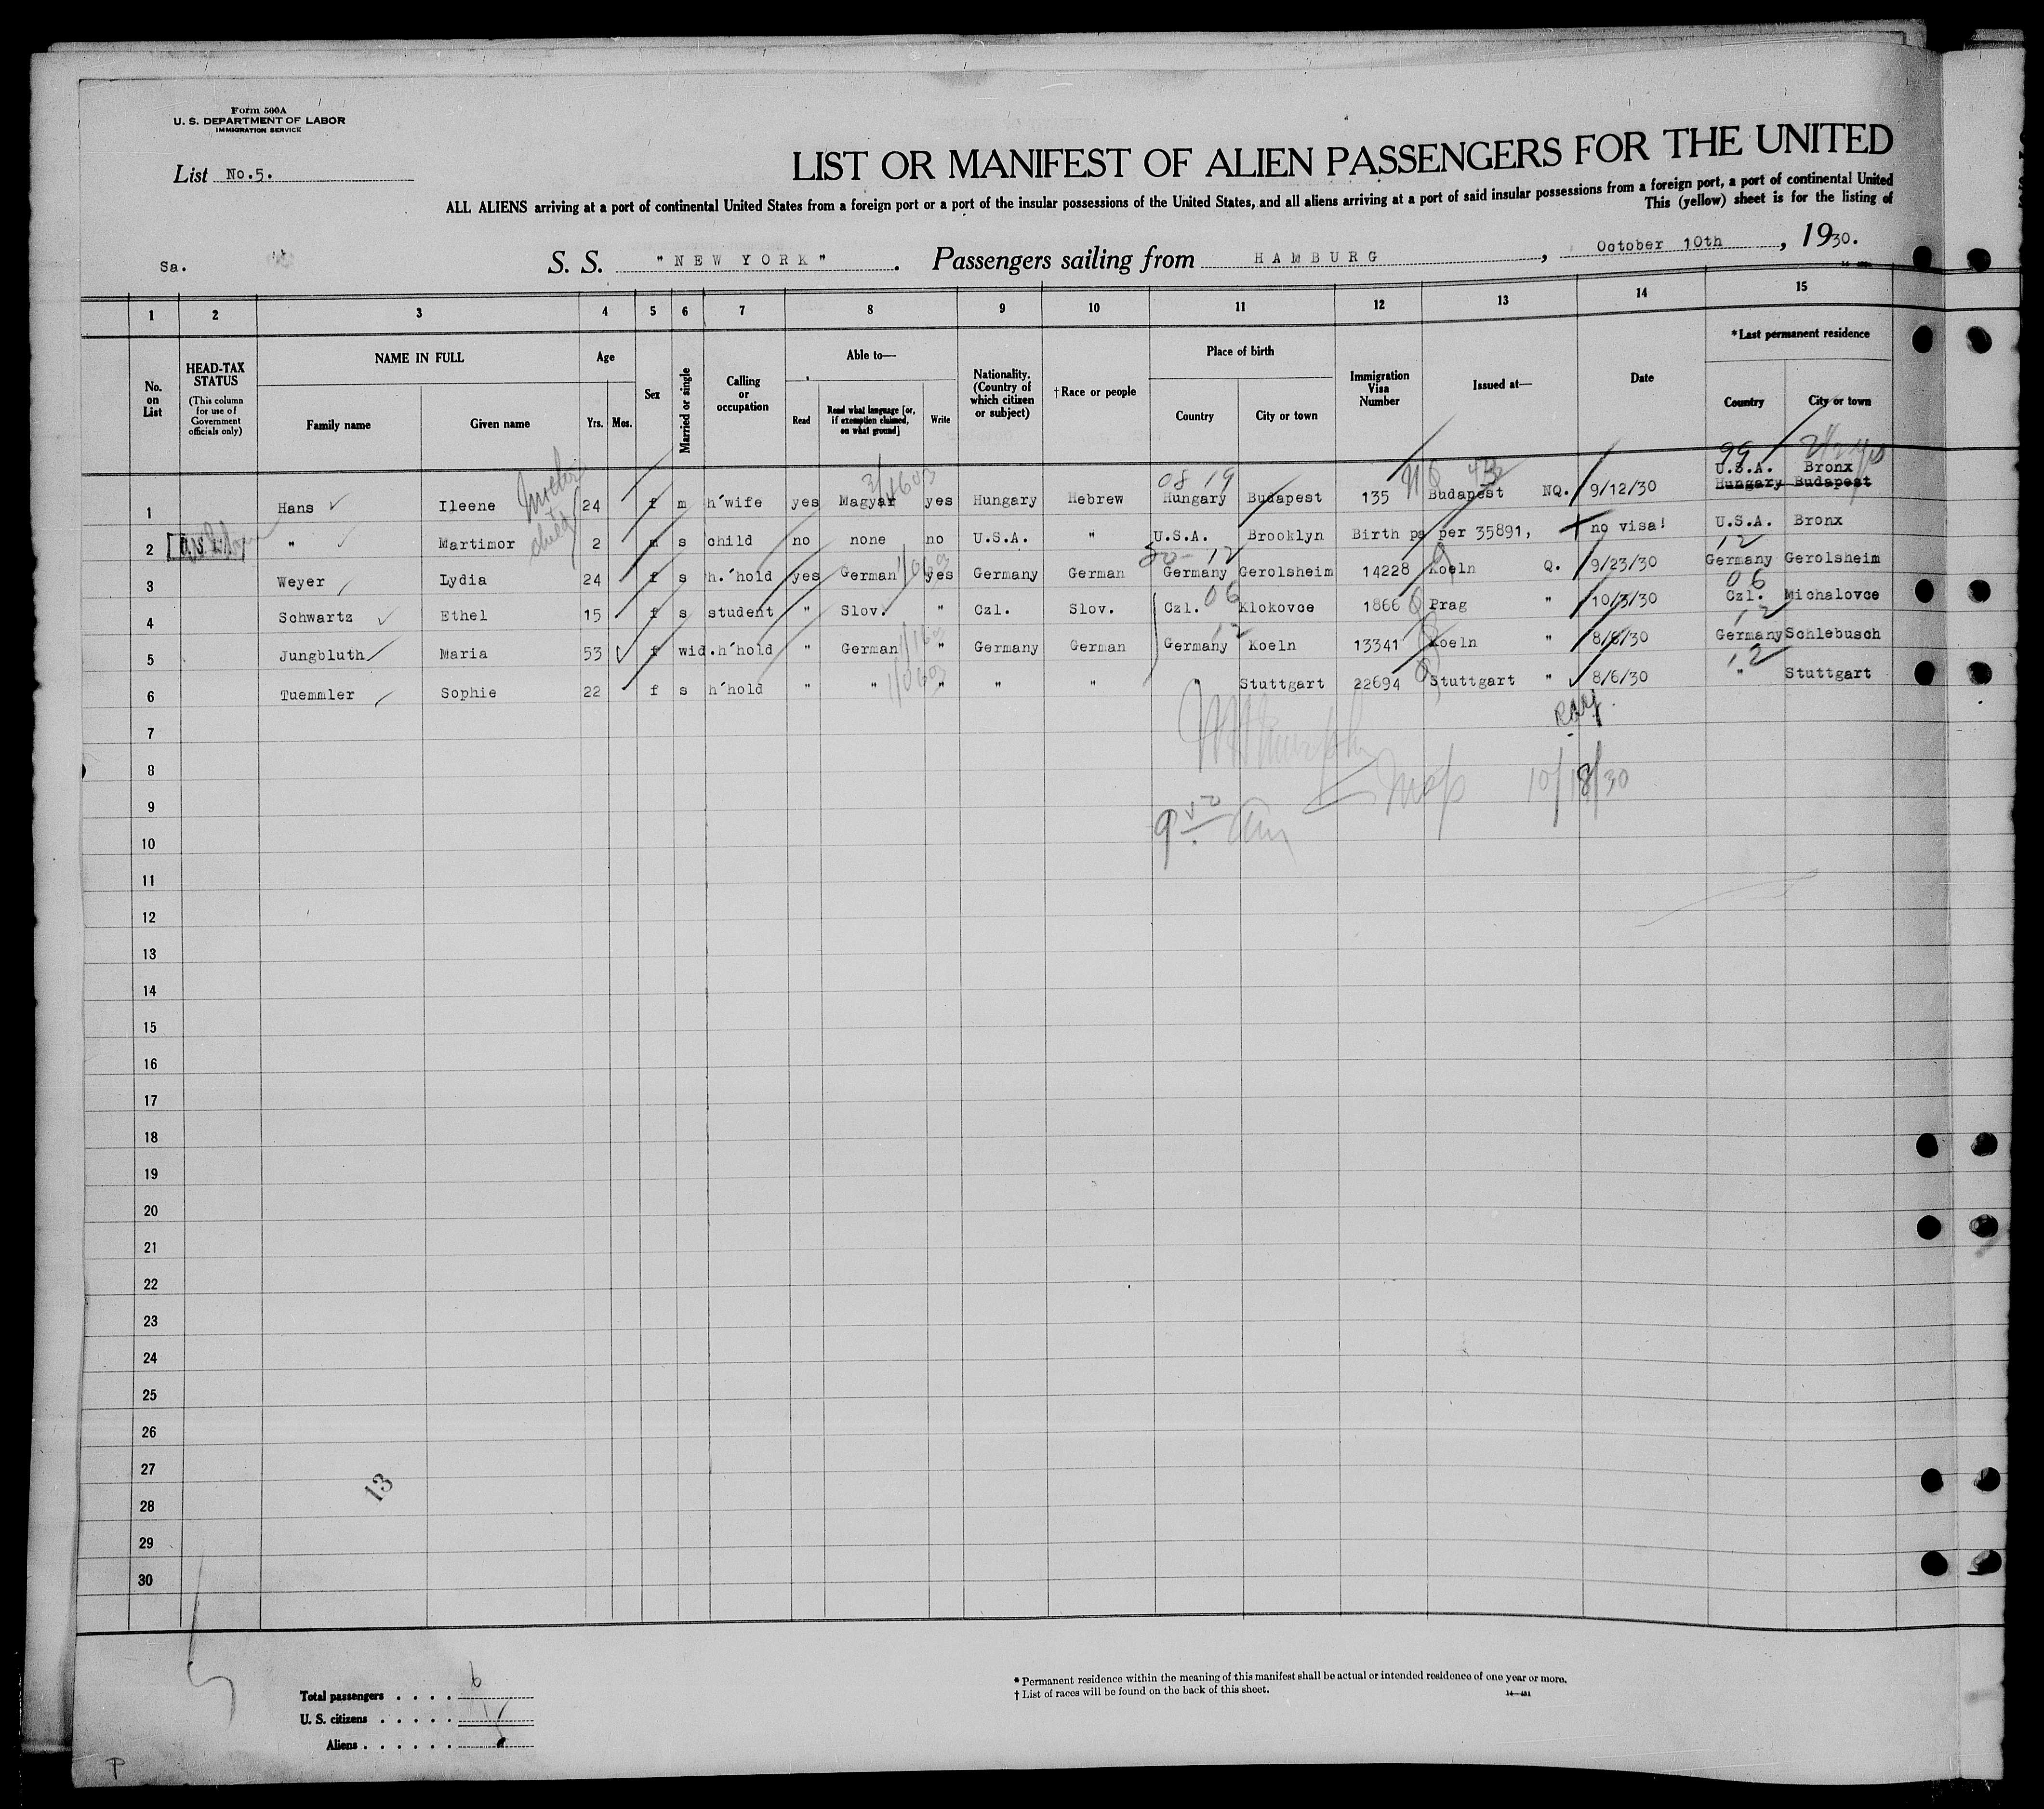 Form 500A
U. S. DEPARTMENT OF LABOR
IMMIGRATION SERVICE
List No.5.
LIST OR MANIFEST OF ALIEN PASSENGERS FOR THE UNITED
ALL ALIENS arriving at a port of continental United States from a foreign port or a port of the insular possessions of the United States, and all aliens arriving at a port of said insular possessions from a foreign port, a port of continental United
This (yellow) sheet is for the listing of
Sa. S. S. "NEW YORK". Passengers sailing from HAMBURG, October 10th, 1930.
1 2 3 4 5 6 7 8 9 10 11 12 13 14 15
No. on List
HEAD-TAX STATUS
(This column for use of Government officials only)
NAME IN FULL
Family name Given name
Age
Yrs. Mos.
Sex
Married or single
Calling or occupation
Able to—
Read Read what language [or, if exemption claimed, on what ground] Write
Nationality. (Country of which citizen or subject)
†Race or people
Place of birth
Country City or town
Immigration Visa Number
Issued at—
Date
*Last permanent residence
Country City or town
99
08 19 U.S.A. Bronx
1 Hans Ileene 24 f m h'wife yes Magyar yes Hungary Hebrew Hungary Budapest 135 Budapest NQ. 9/12/30 Hungary Budapest
2 " Martimor 2 m s child no none no U.S.A. " U.S.A. Brooklyn Birth pa per 35891, no visa! U.S.A. Bronx
12
3 Weyer Lydia 24 f s h.'hold yes German yes Germany German Germany Gerolsheim 14228 Koeln Q. 9/23/30 Germany Gerolsheim
06 06
4 Schwartz Ethel 15 f s student " Slov. " Czl. Slov. Czl. Klokovce 1866 Prag " 10/3/30 Czl. Michalovce
12 12
5 Jungbluth Maria 53 f wid. h'hold " German " Germany German Germany Koeln 13341 Koeln " 8/6/30 Germany Schlebusch
12
6 Tuemmler Sophie 22 f s h'hold " " " " " " Stuttgart 22694 Stuttgart " 8/6/30 " Stuttgart
7
8
10/18/30
9
10
11
12
13
14
15
16
17
18
19
20
21
22
23
24
25
26
27
13
28
29
30
Total passengers . . . . 6
U. S. citizens . . . . . 1
Aliens . . . . . .
* Permanent residence within the meaning of this manifest shall be actual or intended residence of one year or more.
† List of races will be found on the back of this sheet.
P